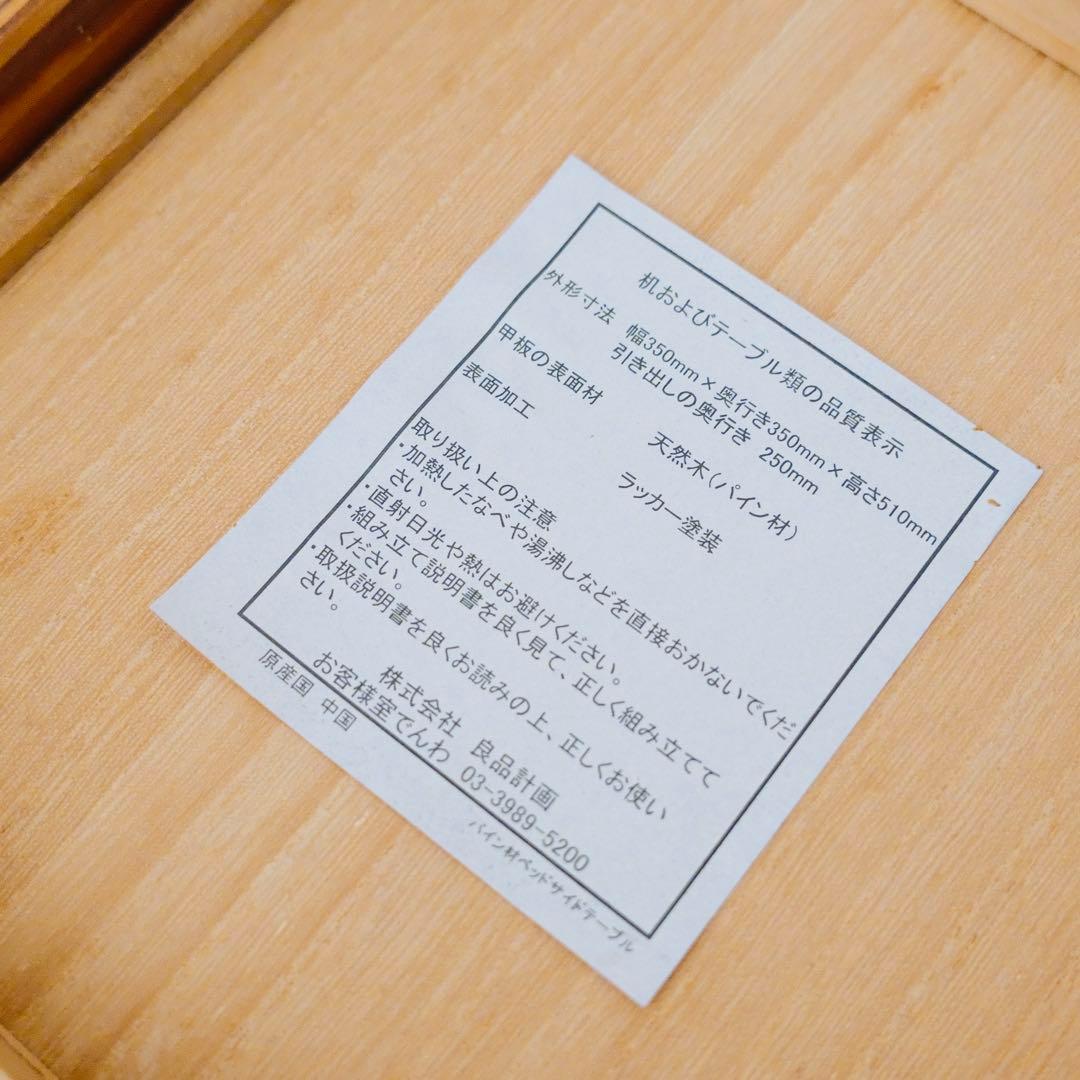 机およびテーブル類の品質表示
外形寸法 幅350mm×奥行き350mm×高さ510mm
引き出しの奥行き 250mm
甲板の表面材 天然木(パイン材)
表面加工 ラッカー塗装
取り扱い上の注意
・加熱したなべや湯沸しなどを直接おかないでくだ
さい。
・直射日光や熱はお避けください。
・組み立て説明書を良く見て、正しく組み立てて
ください。
・取扱説明書を良くお読みの上、正しくお使い
さい。
株式会社 良品計画
お客様室でんわ 03-3989-5200
原産国 中国
パイン材ベッドサイドテーブル